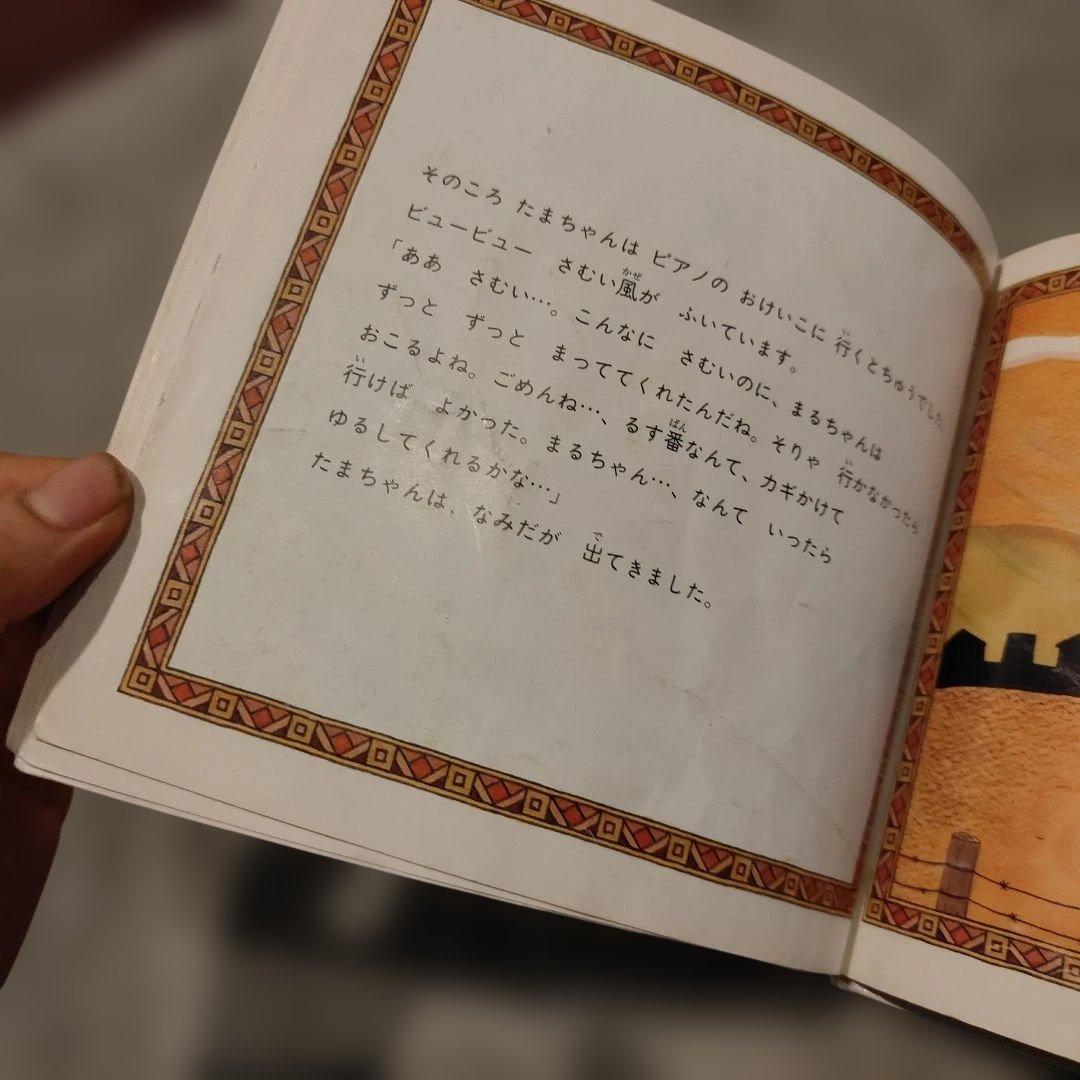 い
そのころ たまちゃんは ピアノの おけいこに 行くとちゅうでした。
かぜ
ビュービュー さむい風が ふいています。
「ああ さむい…。こんなに さむいのに、まるちゃんは
い
ずっと ずっと まっててくれたんだね。そりゃ 行かなかったら
ばん
おこるよね。ごめんね…、るす番なんて、カギかけて
い
行けば よかった。まるちゃん…、なんて いったら
ゆるしてくれるかな…」
で
たまちゃんは、なみだが 出てきました。